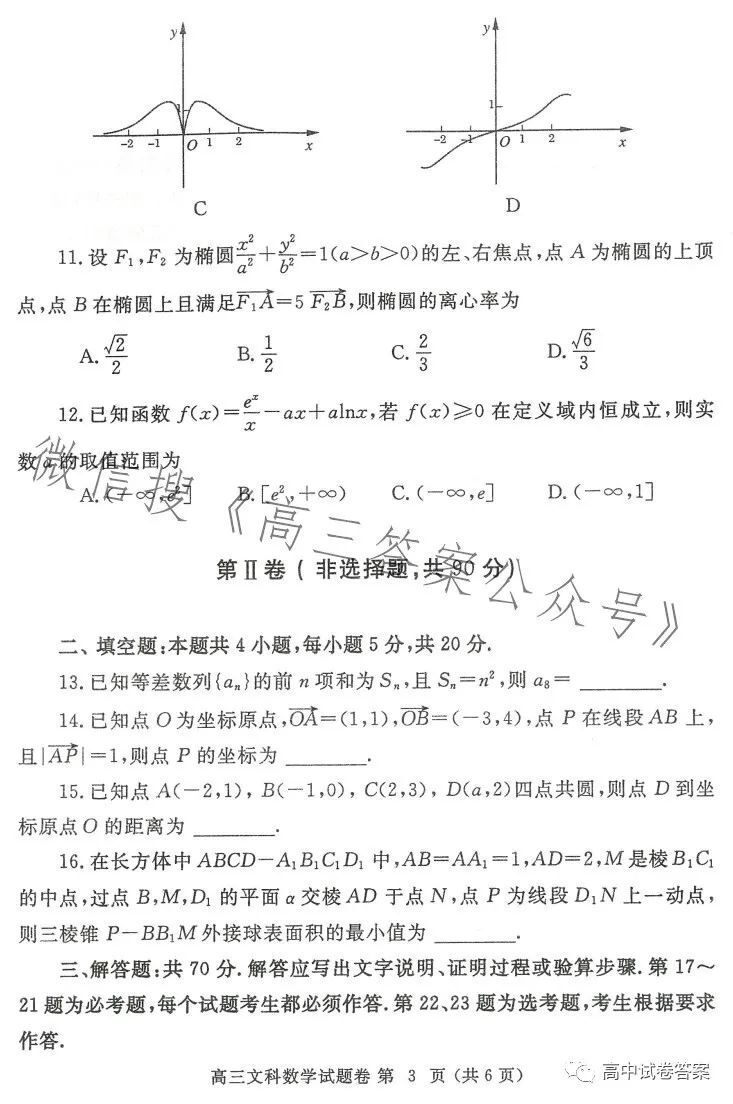 y
y
1
1
-2 -1 O 1 2 x
-2 -1 O 1 2 x
C
D
11.设 F₁,F₂ 为椭圆x²/a²+y²/b²=1(a>b>0)的左、右焦点,点 A 为椭圆的上顶
点,点 B 在椭圆上且满足\overrightarrow{F₁A}=5\overrightarrow{F₂B},则椭圆的离心率为
A.√2/2 B.1/2 C.2/3 D.√6/3
12.已知函数 f(x)=eˣ/x-ax+alnx,若 f(x)≥0 在定义域内恒成立,则实
数a的取值范围为
A.(-∞,e²] B.[e²,+∞) C.(-∞,e] D.(-∞,1]
微信搜《高三答案公众号》
第Ⅱ卷(非选择题,共90分)
二、填空题:本题共 4 小题,每小题 5 分,共 20 分.
13.已知等差数列{aₙ}的前 n 项和为 Sₙ,且 Sₙ=n²,则 a₈=________.
14.已知点 O 为坐标原点,\overrightarrow{OA}=(1,1),\overrightarrow{OB}=(-3,4),点 P 在线段 AB 上,
且|\overrightarrow{AP}|=1,则点 P 的坐标为________.
15.已知点 A(-2,1), B(-1,0), C(2,3), D(a,2)四点共圆,则点 D 到坐
标原点 O 的距离为________.
16.在长方体中 ABCD-A₁B₁C₁D₁ 中,AB=AA₁=1,AD=2,M 是棱 B₁C₁
的中点,过点 B,M,D₁ 的平面 α 交棱 AD 于点 N,点 P 为线段 D₁N 上一动点,
则三棱锥 P-BB₁M 外接球表面积的最小值为________.
三、解答题:共 70 分.解答应写出文字说明、证明过程或验算步骤.第 17~
21 题为必考题,每个试题考生都必须作答.第 22、23 题为选考题,考生根据要求
作答.
高三文科数学试题卷 第 3 页(共6页)
高中试卷答案